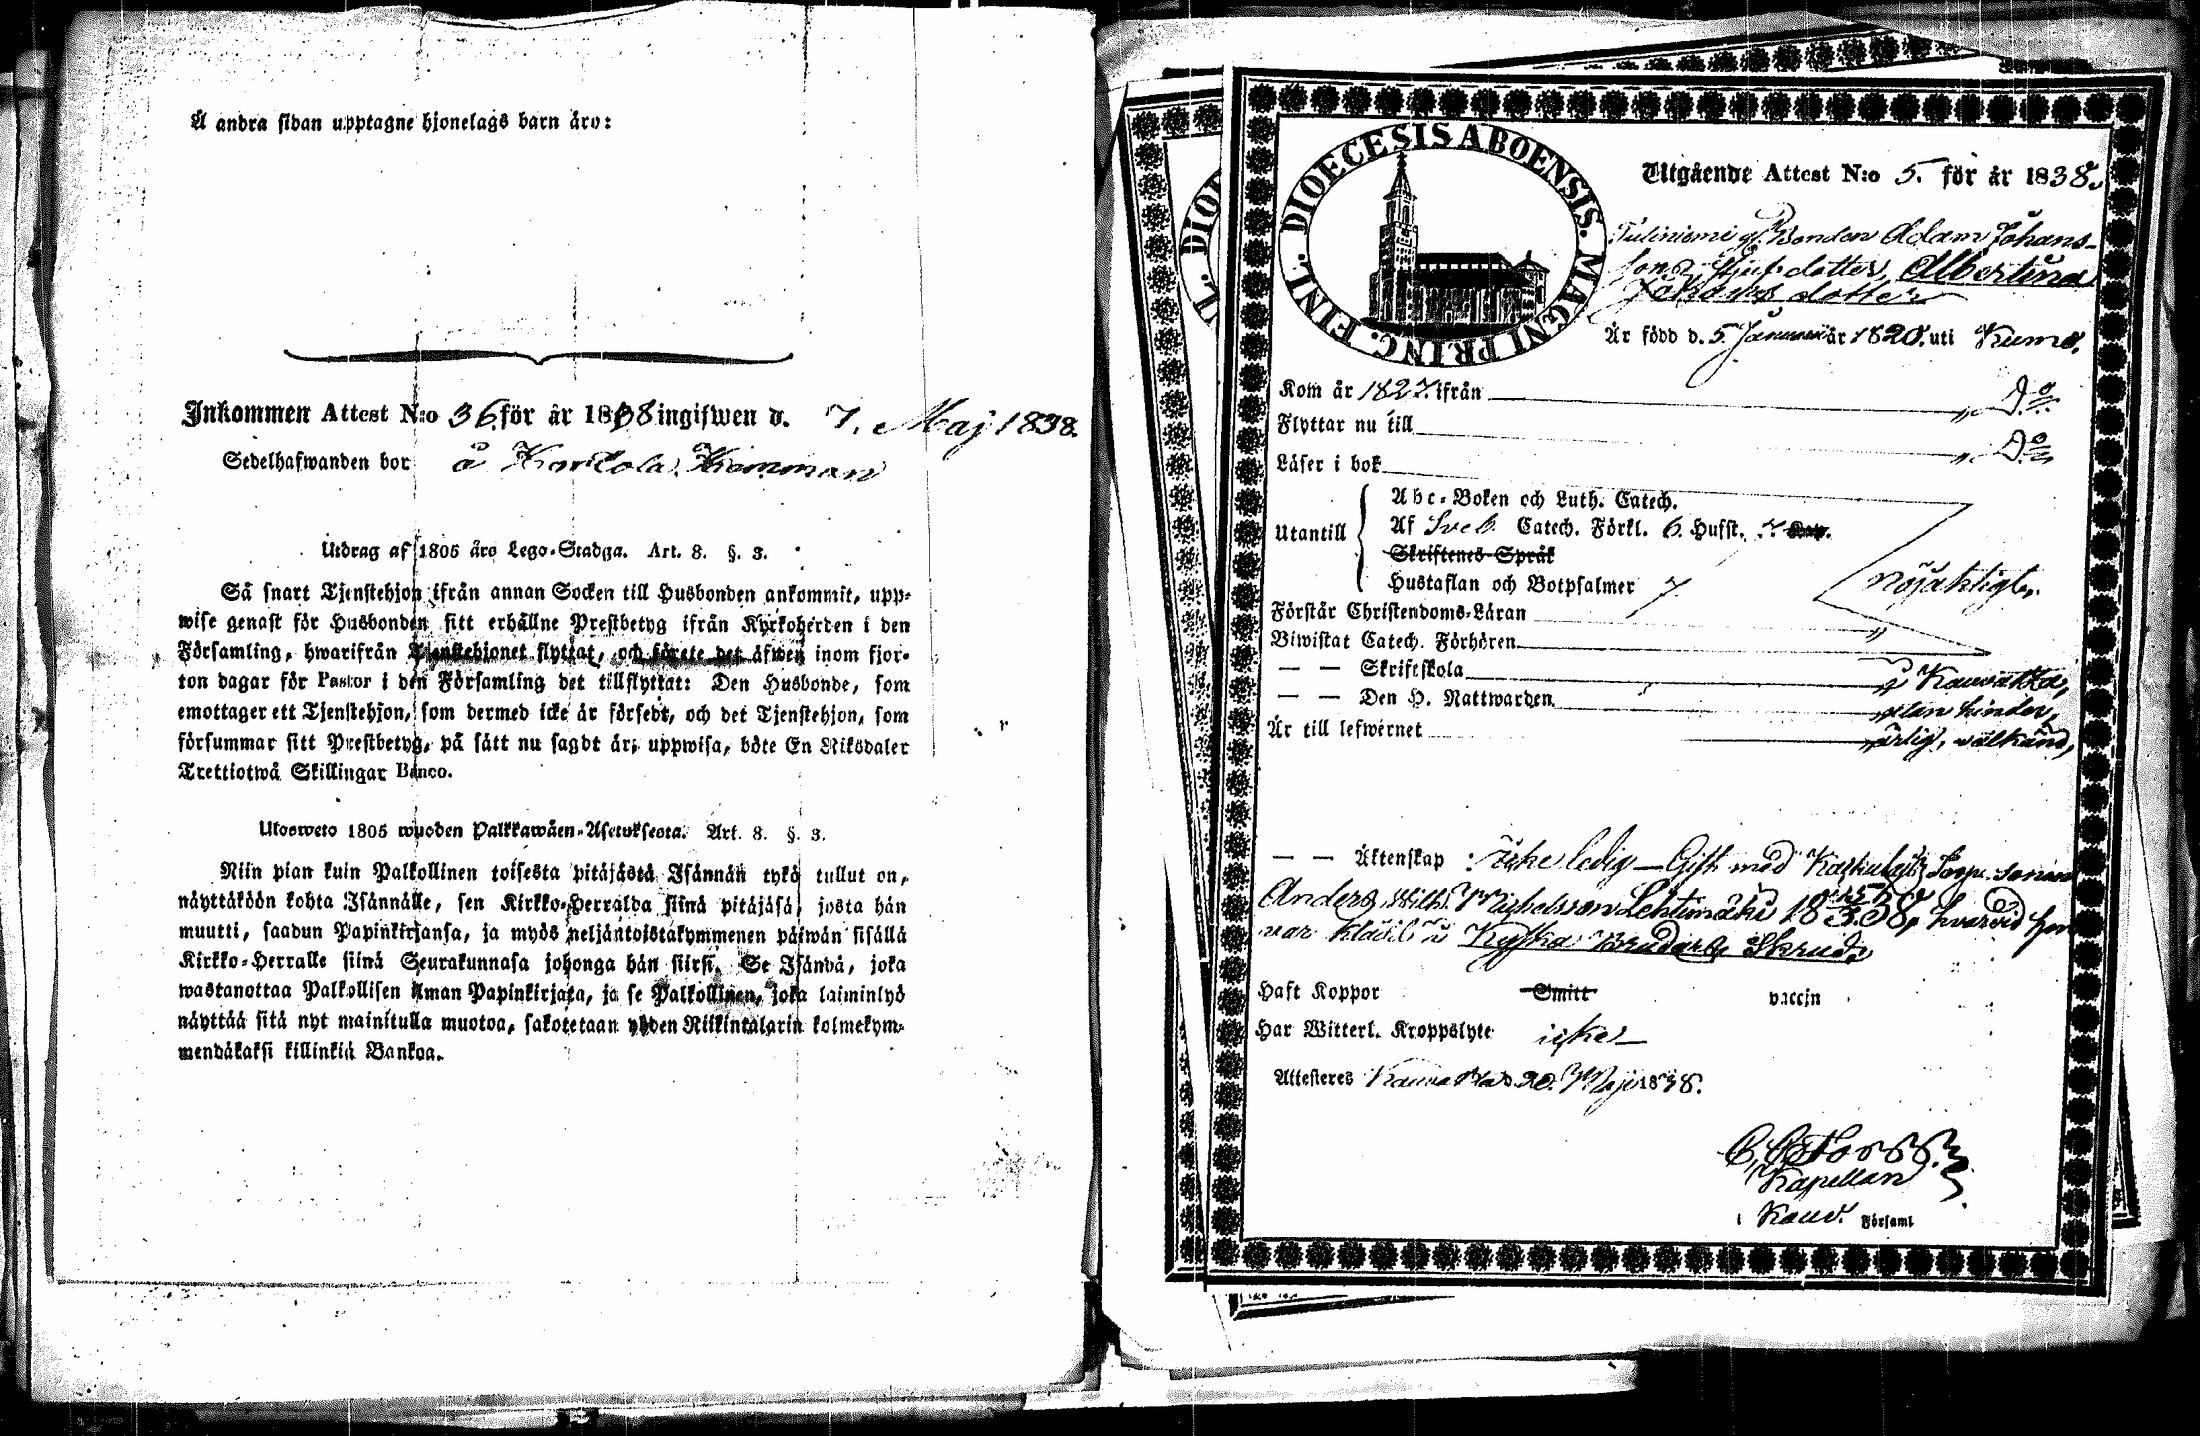 Å andra sidan upptagne hjonelags barn äro:
Inkommen Attest N:o 36 för år 1838 ingifwen d. 7. Maj 1838.
Sedelhafwanden bor å
Utdrag af 1805 års Lego-Stadga. Art. 8. §. 3.
Så snart Tjenstehjon ifrån annan Socken till Husbonden ankommit, upp-
wise genast för Husbonden sitt erhållne Prestbetyg ifrån Kyrkoherden i den
Församling, hwarifrån Tjenstehjonet flyttat, och förete det äfwen inom fjor-
ton dagar för Pastor i den Församling det tillflyttat: Den Husbonde, som
emottager ett Tjenstehjon, som dermed icke är försedt, och det Tjenstehjon, som
försummar sitt Prestbetyg, på sätt nu sagdt är, uppwisa, böte En Riksdaler
Trettiotwå Skillingar Banco.
Ulosweto 1805 wuoden Palkkawäen-Asetuksesta. Art. 8. §. 3.
Niin pian kuin Palkollinen toisesta pitäjästä Isännän tykö tullut on,
näyttäköön kohta Isännälle, sen Kirkko-Herralda siinä pitäjäsä, josta hän
muutti, saadun Papinkirjansa, ja myös neljäntoistakymmenen päiwän sisällä
Kirkko-Herralle siinä Seurakunnasa johonga hän siirsi. Se Isändä, joka
wastanottaa Palkollisen ilman Papinkirjata, ja se Palkollinen, joka laiminlyö
näyttää sitä nyt mainitulla muotoa, sakotetaan yhden Riikintalarin kolmekym-
mendäkaksi killinkiä Bankoa.
DIOECESIS ABOENSIS. MAGNI PRINC. FINL.
Utgående Attest N:o 5. för år 1838.
Bonden Adam Johans-
sons Stjufdotter, Albertina
dotter
Är född d. 5 Januarii år 1820. uti Kumo.
Kom år 1827. ifrån D:o
Flyttar nu till D:o
Läser i bok
Abc-Boken och Luth. Catech.
Utantill Af Sveb. Catech. Förkl. 6. Hufst. 7
Skriftenes Språk
Hustaflan och Botpsalmer 7 nöjaktigt.
Förstår Christendoms-Läran
Biwistat Catech. Förhören "
— — Skriftskola i Kauvatsa,
— — Den H. Nattwarden utan hinder,
Är till lefwernet ärlig, välkänd,
— — Äktenskap : icke ledig — Gift med
Anders Wilh. Michelsson Lehtimäki 18 38, hvarvid hon
var klädd i Kyska Brudars Skrud.
Haft Koppor Smitt vaccin
Har Witterl. Kroppslyte icke —
Attesteres Kauvatsa d. 20. Maji 1838.
Kapellan
i Kauv. Församl